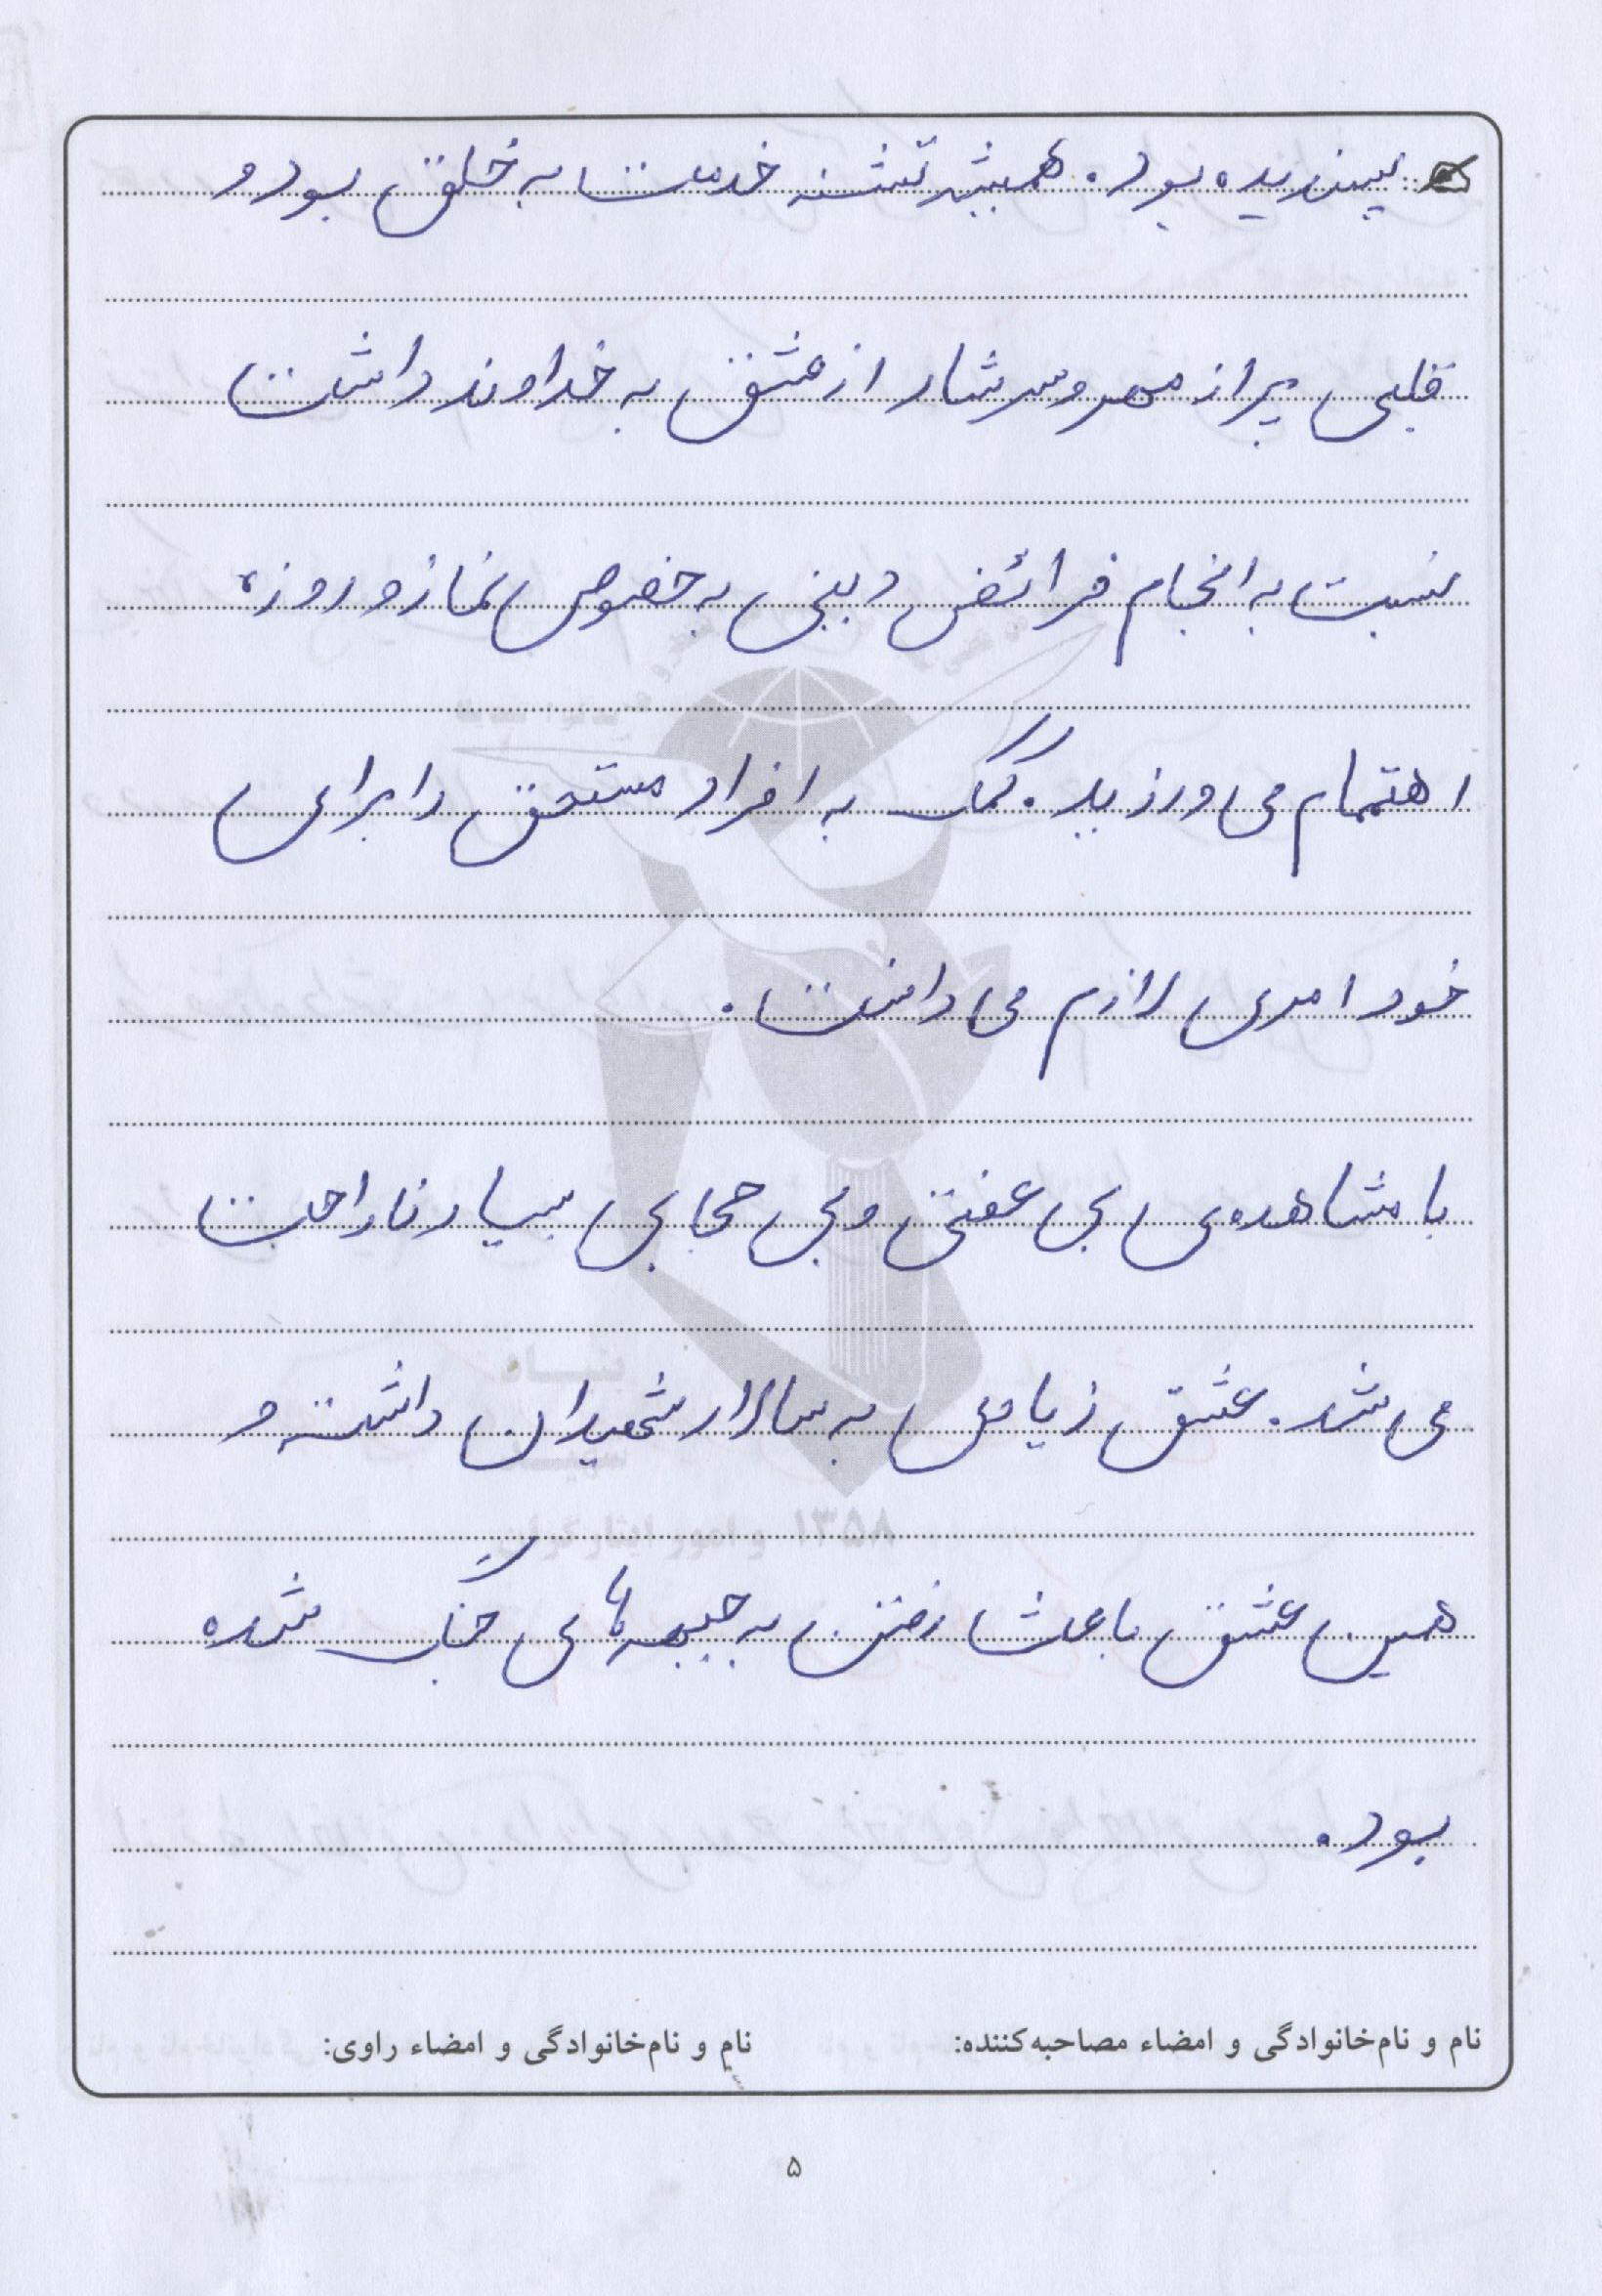 پسندیده بود. همیشه تشنه خدمت به خلق بود و
قلبی پر از مهر و سرشار از عشق به خداوند داشت
نسبت به انجام فرائض دینی به خصوص نماز و روزه
اهتمام می ورزید. کمک به افراد مستحق را برای
خود امری لازم می دانست.
با مشاهده ی بی عفتی و بی حجابی بسیار ناراحت
می شد. عشق زیادی به سالار شهیدان داشته و
همین عشق باعث رفتن به جبهه های جنگ شده
بود.
نام و نام‌خانوادگی و امضاء مصاحبه‌کننده: نام و نام‌خانوادگی و امضاء راوی:
۵
بنیاد
شهید
و امور ایثارگران ۱۳۵۸